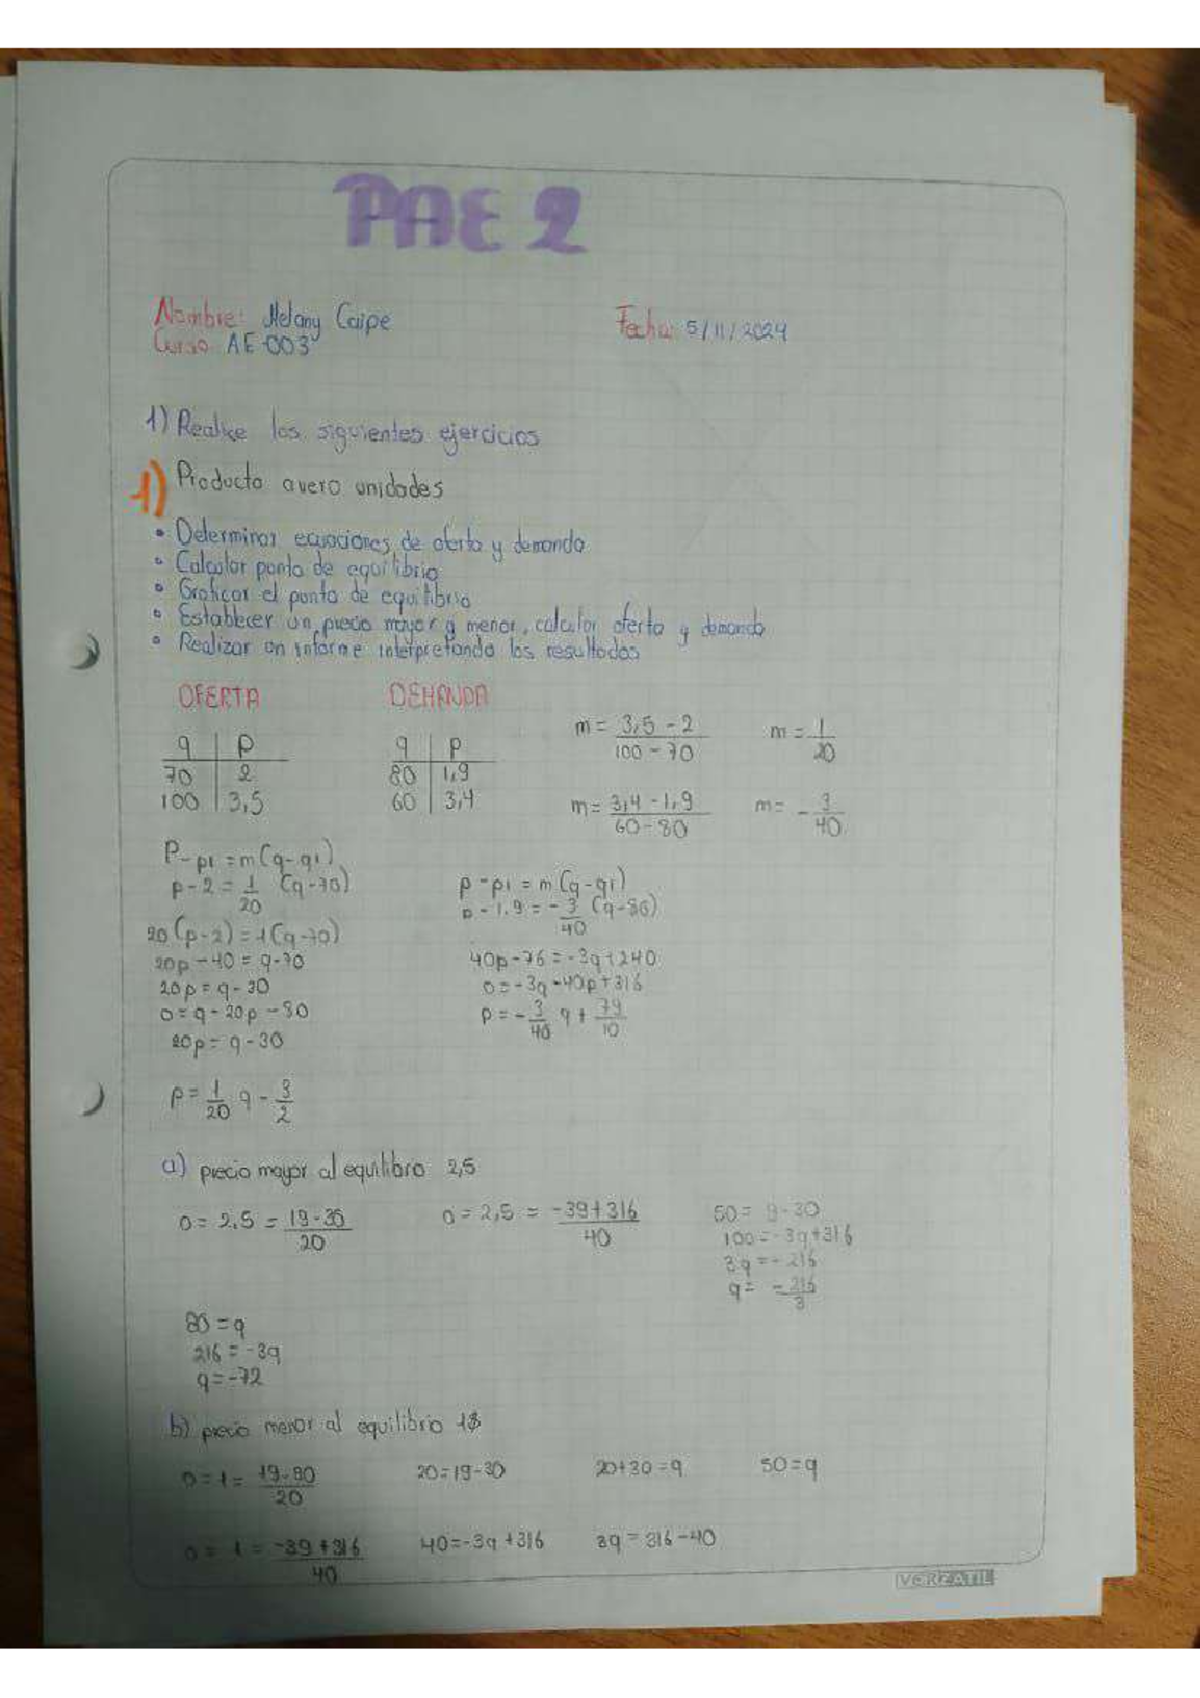 PAE 2
Nombre: Melany Caipe
Fecha: 5/11/2024
Curso AE-003
1) Realice los siguientes ejercicios
1) Producto avero unidades
• Determinar ecuaciones de oferta y demanda
• Calcular punto de equilibrio
• Graficar el punto de equilibrio
• Establecer un precio mayor y menor, calcular oferta y demanda
• Realizar un informe interpretando los resultados
OFERTA
q | p
70 | 2
100 | 3,5
DEMANDA
q | p
80 | 1,9
60 | 3,4
m = (3,5 - 2)/(100 - 70)
m = 1/20
m = (3,4 - 1,9)/(60 - 80)
m = - 3/40
P - p1 = m(q - q1)
p - 2 = 1/20 (q - 70)
20(p - 2) = 1(q - 70)
20p - 40 = q - 70
20p = q - 30
0 = q - 20p - 30
20p = q - 30
p = 1/20 q - 3/2
p - p1 = m(q - q1)
p - 1.9 = - 3/40 (q - 80)
40p - 76 = -3q + 240
0 = -3q - 40p + 316
p = - 3/40 q + 79/10
a) precio mayor al equilibro 2,5
0 = 2,5 = (1q - 30)/20
0 = 2,5 = (-3q + 316)/40
50 = q - 30
100 = -3q + 316
3q = - 216
q = - 216/3
80 = q
216 = -3q
q = -72
b) precio menor al equilibrio 1$
0 = 1 = (1q - 30)/20
20 = 1q - 30
20 + 30 = q
50 = q
0 = 1 = (-3q + 316)/40
40 = -3q + 316
3q = 316 - 40
VERZATIL